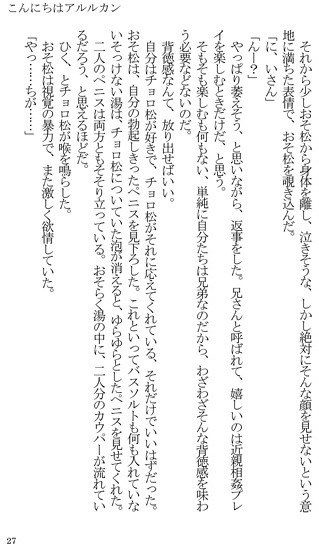 こんにちはアルルカン
それから少しおそ松から身体を離し、泣きそうな、しかし絶対にそんな顔を見せないという意
地に満ちた表情で、おそ松を覗き込んだ。
「に、いさん」
「んー？」
やっぱり萎えそう、と思いながら、返事をした。兄さんと呼ばれて、嬉しいのは近親相姦プレ
イを楽しむときだけだ、と思う。
そもそも楽しむも何もない、単純に自分たちは兄弟なのだから、わざわざそんな背徳感を味わ
う必要などないのだ。
背徳感なんて、放り出せばいい。
自分はチョロ松が好きで、チョロ松がそれに応えてくれている、それだけでいいはずだった。
おそ松は、自分の勃起しきったペニスを見下ろした。これといってバスソルトも何も入れていな
いそっけない湯は、チョロ松についていた泡が消えると、ゆらゆらとしたペニスを見せてくれた。
二人のペニスは両方ともそそり立っている。おそらく湯の中に、二人分のカウパーが流れてい
るだろう、と思えるほどだ。
ひく、とチョロ松が喉を鳴らした。
おそ松は視覚の暴力で、また激しく欲情していた。
「やっ……ちが……」
27